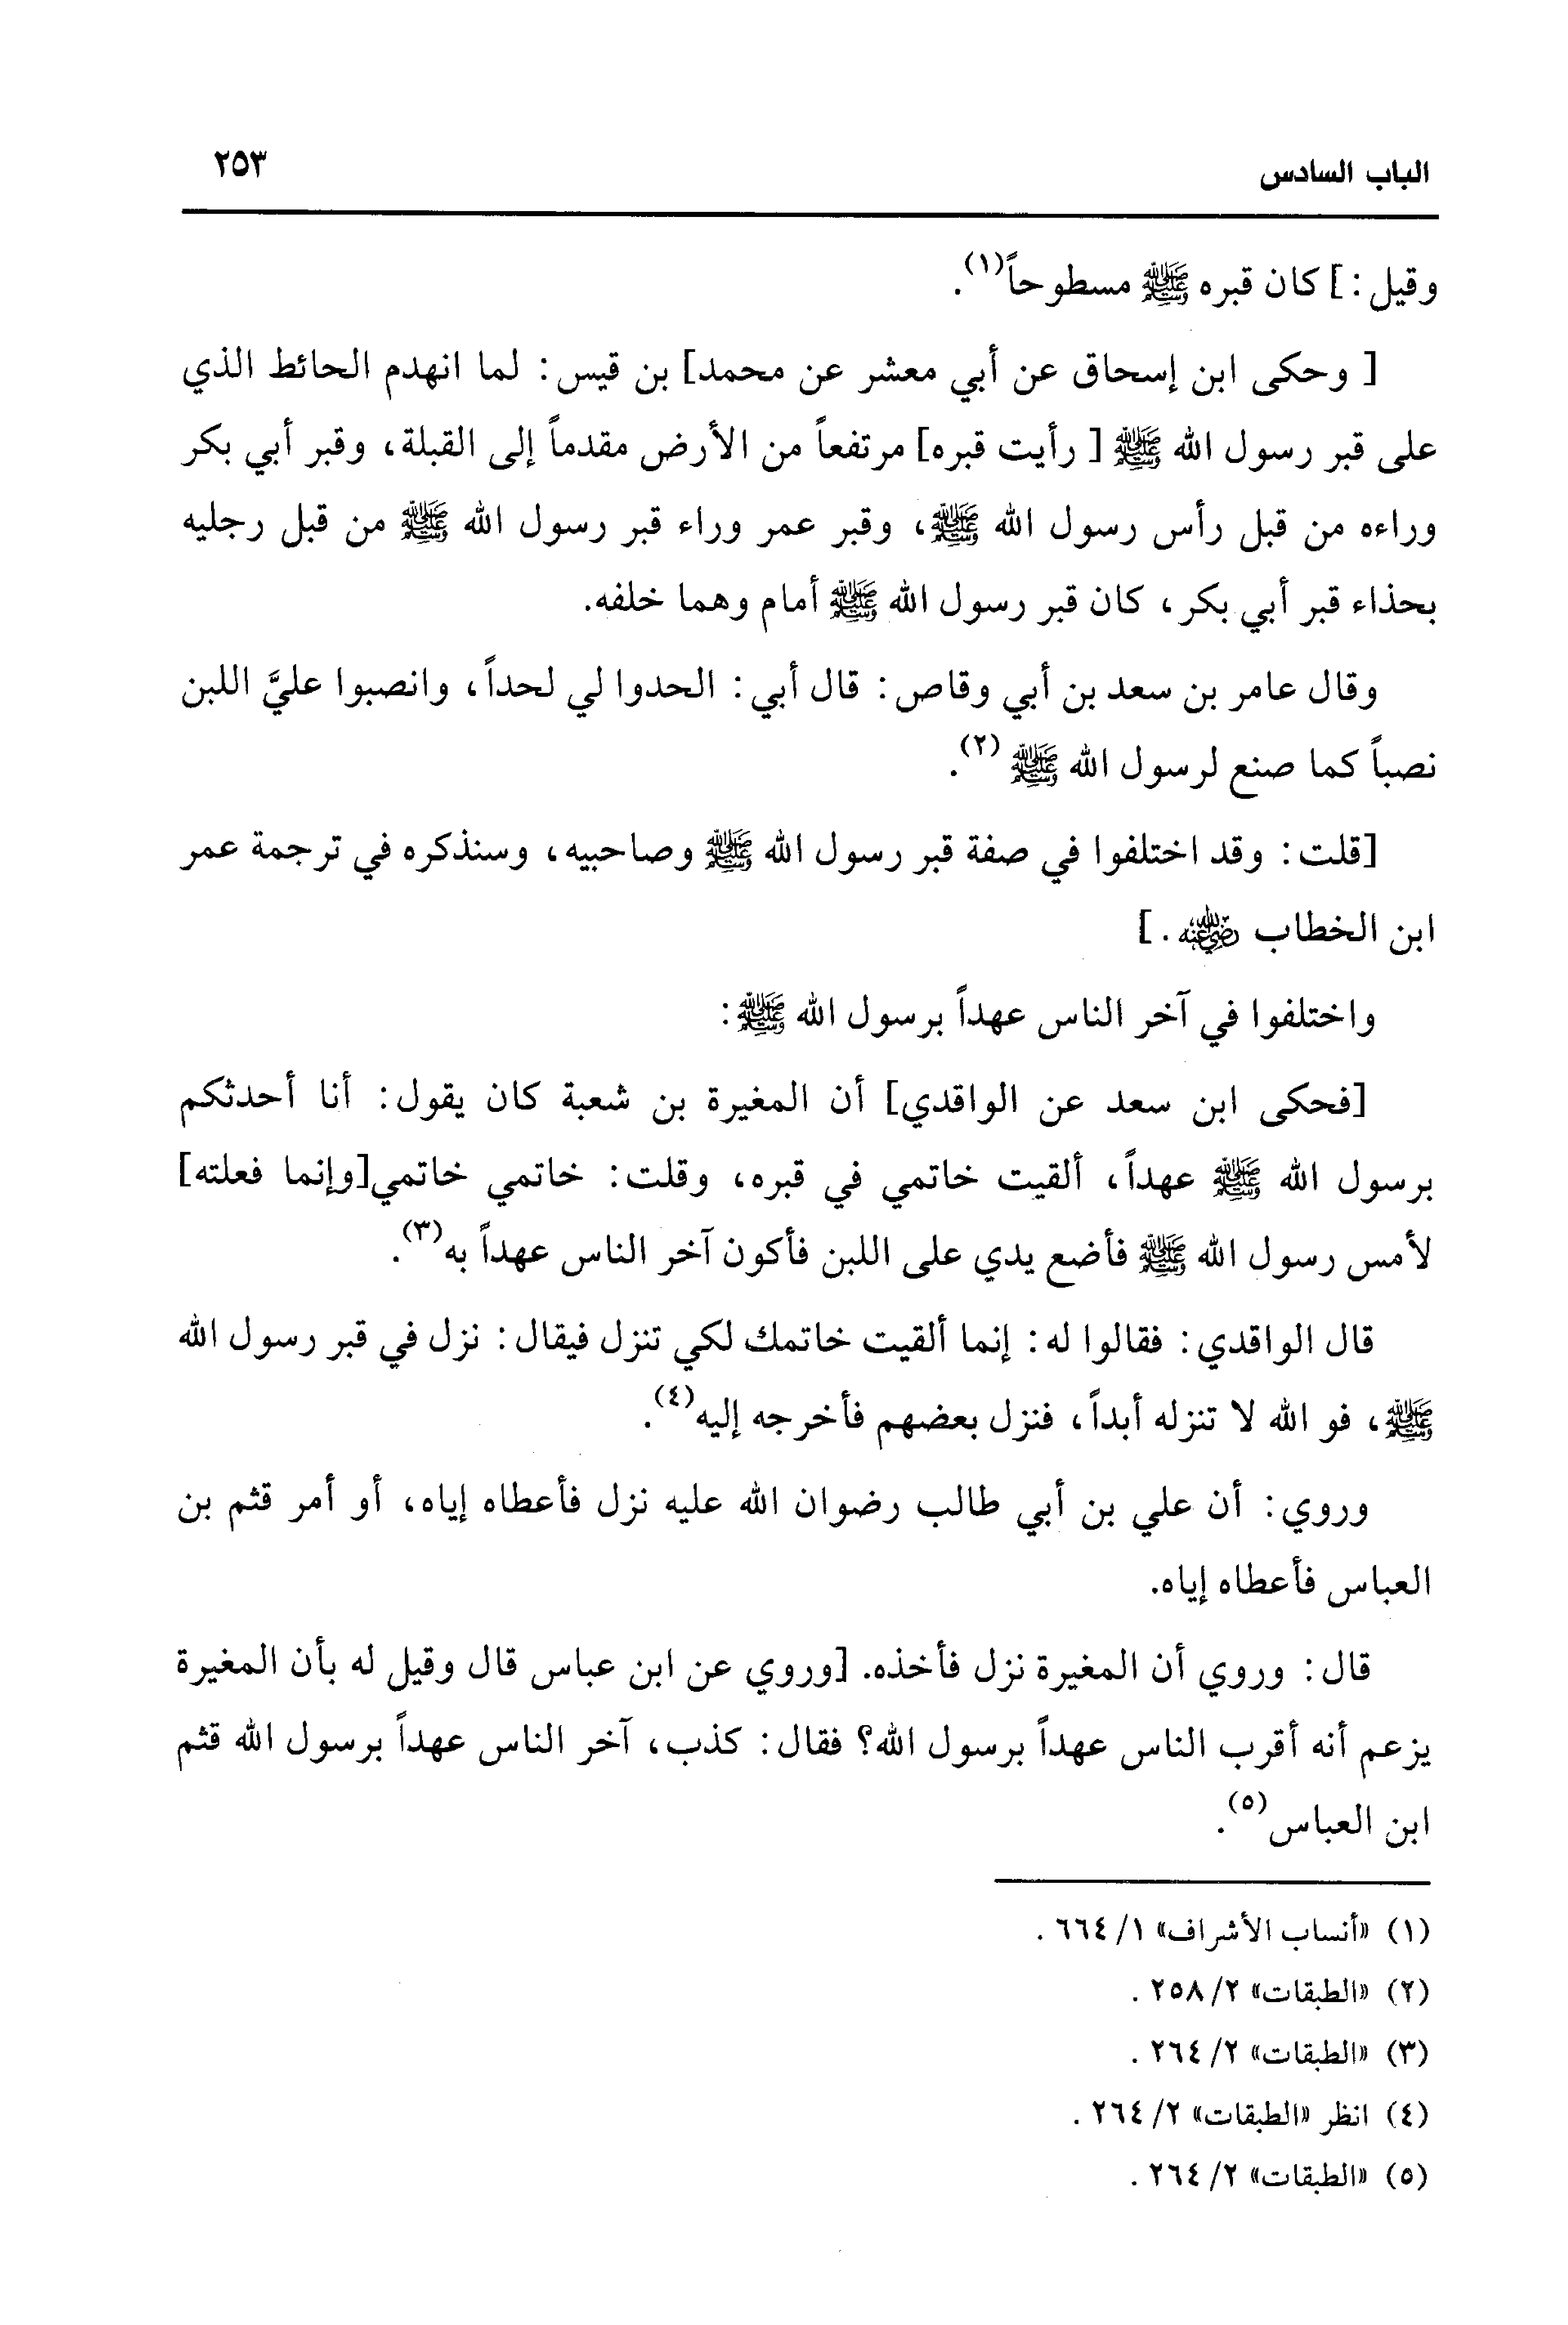 الباب السادس ٢٥٣
وقيل: ] كان قبره ﷺ مسطوحاً(١).
[ وحكى ابن إسحاق عن أبي معشر عن محمد] بن قيس: لما انهدم الحائط الذي
على قبر رسول الله ﷺ [ رأيت قبره] مرتفعاً من الأرض مقدماً إلى القبلة، وقبر أبي بكر
وراءه من قبل رأس رسول الله ﷺ، وقبر عمر وراء قبر رسول الله ﷺ من قبل رجليه
بحذاء قبر أبي بكر، كان قبر رسول الله ﷺ أمام وهما خلفه.
وقال عامر بن سعد بن أبي وقاص: قال أبي: الحدوا لي لحداً، وانصبوا عليَّ اللبن
نصباً كما صنع لرسول الله ﷺ (٢).
[قلت: وقد اختلفوا في صفة قبر رسول الله ﷺ وصاحبيه، وسنذكره في ترجمة عمر
ابن الخطاب رضي الله عنه. ]
واختلفوا في آخر الناس عهداً برسول الله ﷺ:
[فحكى ابن سعد عن الواقدي] أن المغيرة بن شعبة كان يقول: أنا أحدثكم
برسول الله ﷺ عهداً، ألقيت خاتمي في قبره، وقلت: خاتمي خاتمي[وإنما فعلته]
لأمس رسول الله ﷺ فأضع يدي على اللبن فأكون آخر الناس عهداً به(٣).
قال الواقدي: فقالوا له: إنما ألقيت خاتمك لكي تنزل فيقال: نزل في قبر رسول الله
ﷺ، فو الله لا تنزله أبداً، فنزل بعضهم فأخرجه إليه(٤).
وروي: أن علي بن أبي طالب رضوان الله عليه نزل فأعطاه إياه، أو أمر قثم بن
العباس فأعطاه إياه.
قال: وروي أن المغيرة نزل فأخذه. [وروي عن ابن عباس قال وقيل له بأن المغيرة
يزعم أنه أقرب الناس عهداً برسول الله؟ فقال: كذب، آخر الناس عهداً برسول الله قثم
ابن العباس(٥).
(١) «أنساب الأشراف» ١/ ٦٦٤ .
(٢) «الطبقات» ٢/ ٢٥٨ .
(٣) «الطبقات» ٢/ ٢٦٤ .
(٤) انظر «الطبقات» ٢/ ٢٦٤ .
(٥) «الطبقات» ٢/ ٢٦٤ .